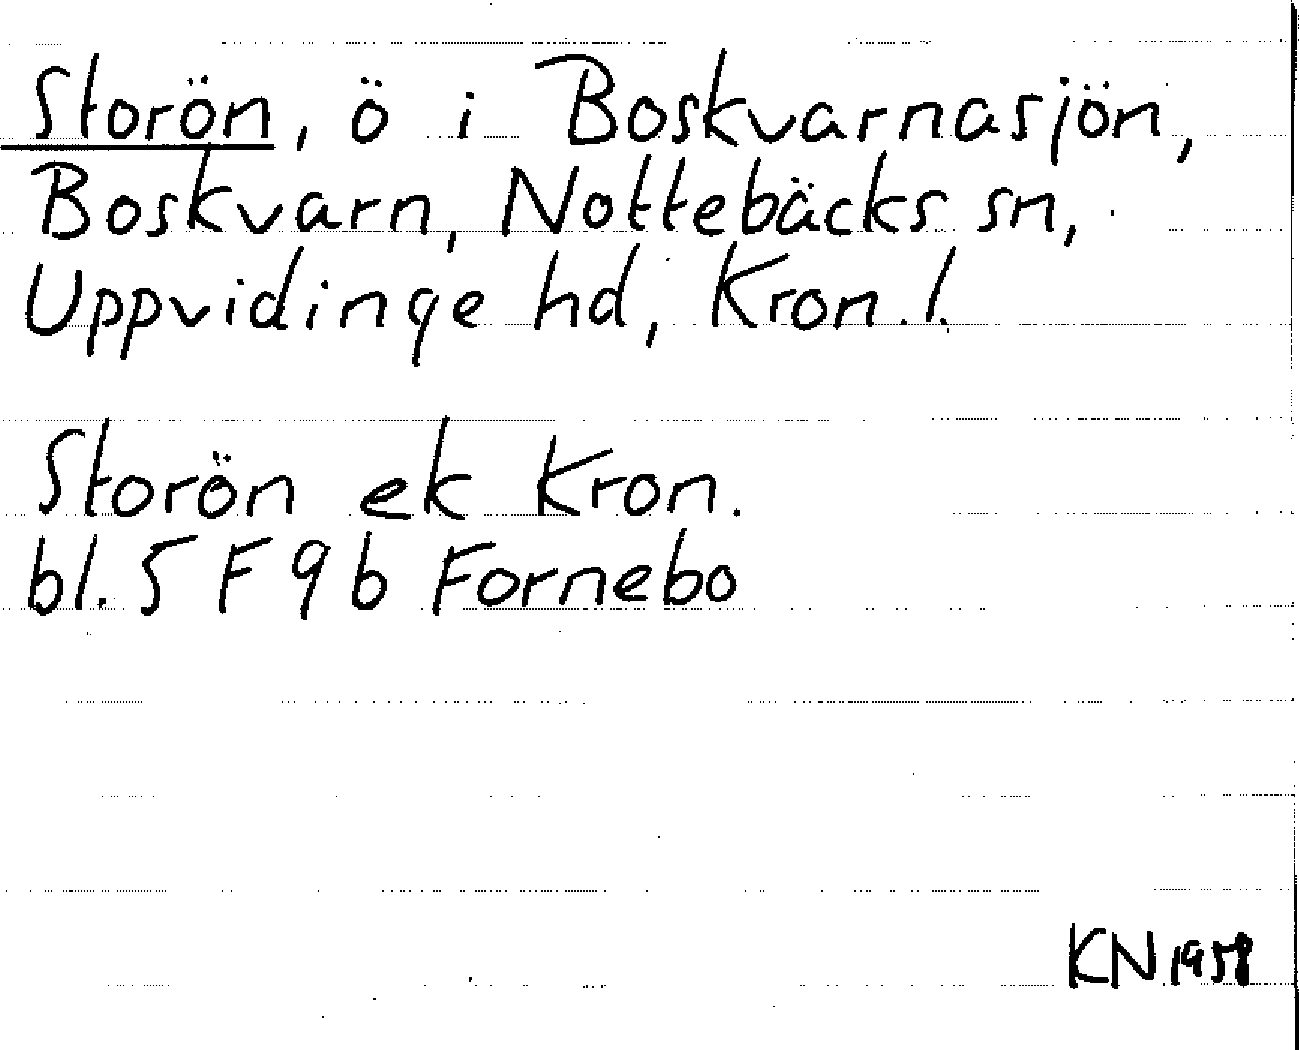 Storön, ö i Boskvarnasjön,
Boskvarn, Nottebäcks sn,
Uppvidinge hd, Kron. l.
Storön ek Kron.
bl. 5 F 9 b Fornebo
KN 1958